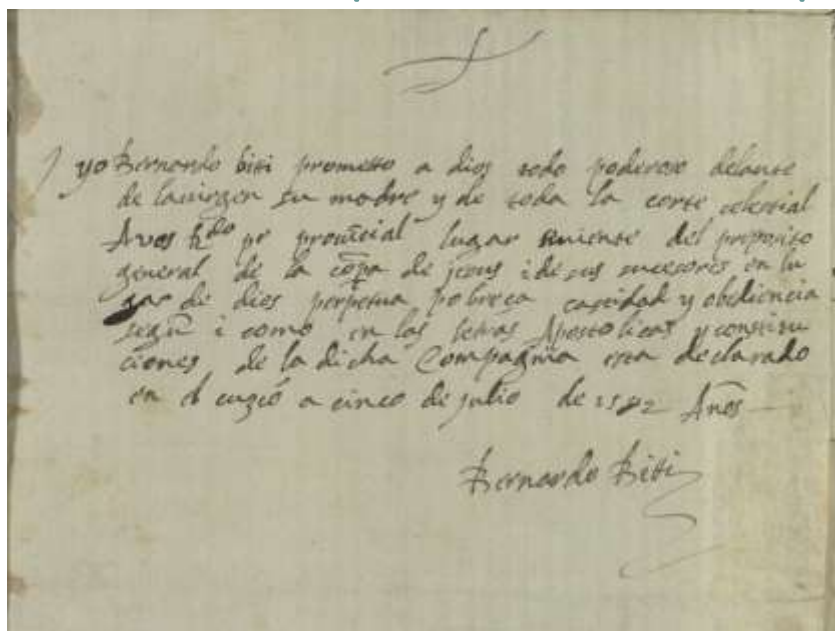 yo Bernardo biti prometto a dios todo poderoso delante
de la uirgen su madre y de toda la corte celestial
A uos pe prouīcial lugar teniente del preposito
general de la cōpa de jesus i de sus sucesores en lu
gar de dios perpetua pobreça castidad y obediencia
segū i como en las letras Apostolicas y constitu
ciones de la dicha Compagnia esta declarado
en el cuzco a cinco de julio de 1582 Años
Bernardo Biti